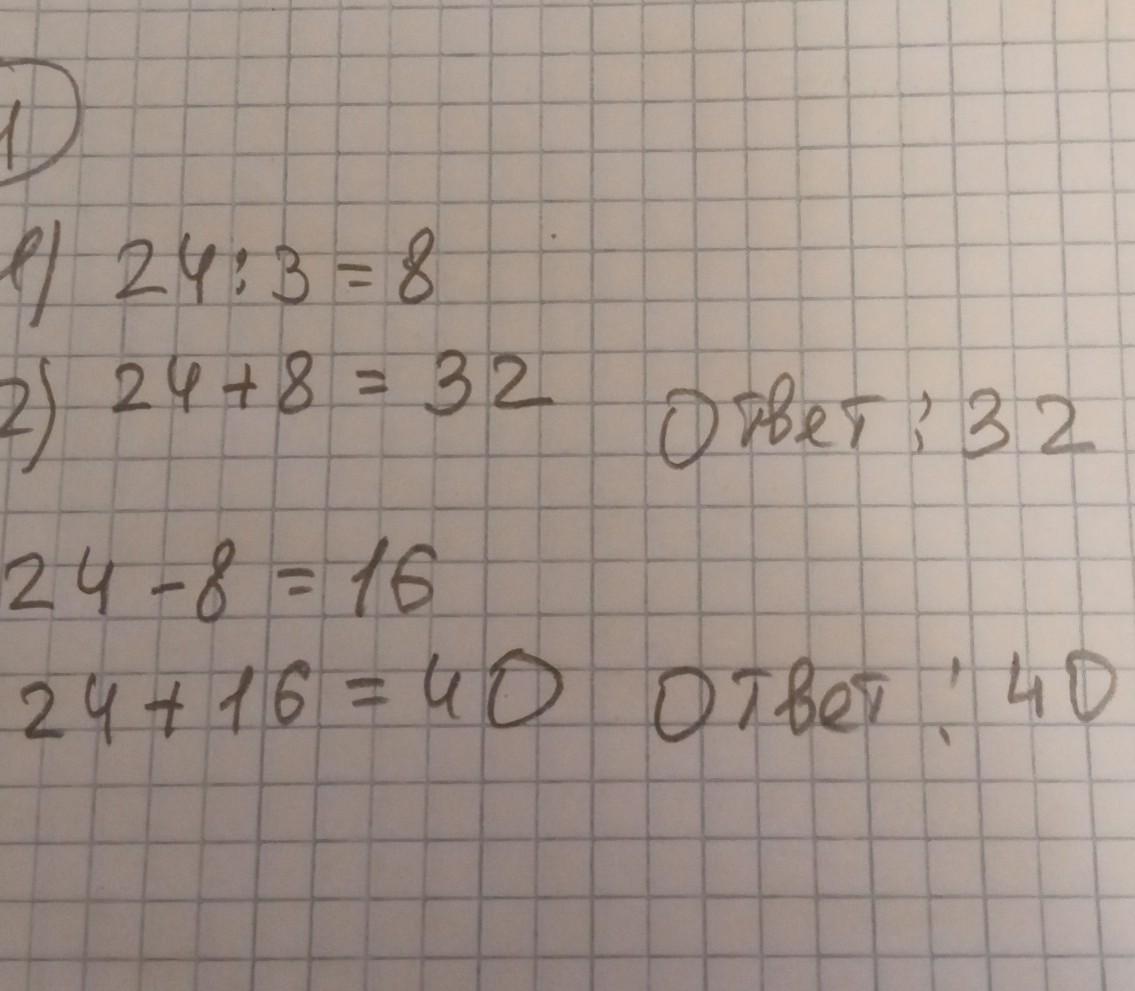 1
1) 24:3=8
2) 24+8=32 Ответ: 32
24-8=16
24+16=40 Ответ: 40